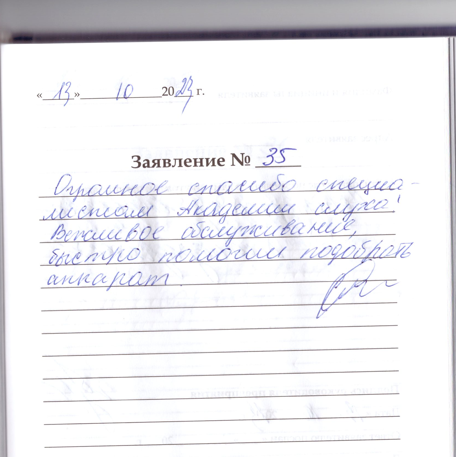 «13» 10 2023 г.
Заявление № 35
Огромное спасибо специа-
листам Академии слуха!
Вежливое обслуживание,
быстро помогли подобрать
аппарат.